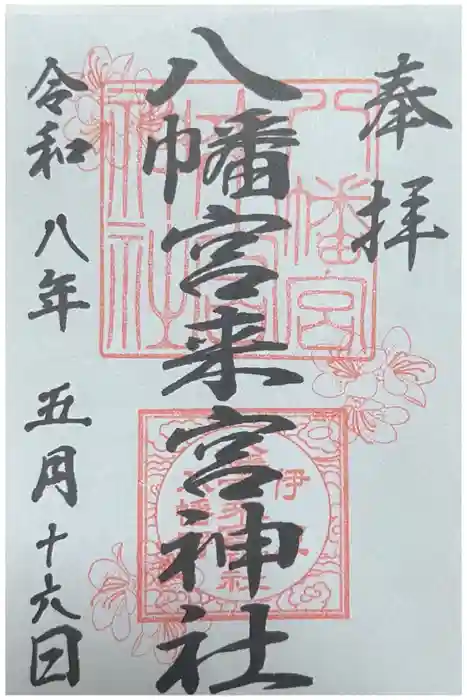 奉拝
八幡宮来宮神社
令和八年五月十六日
八幡宮